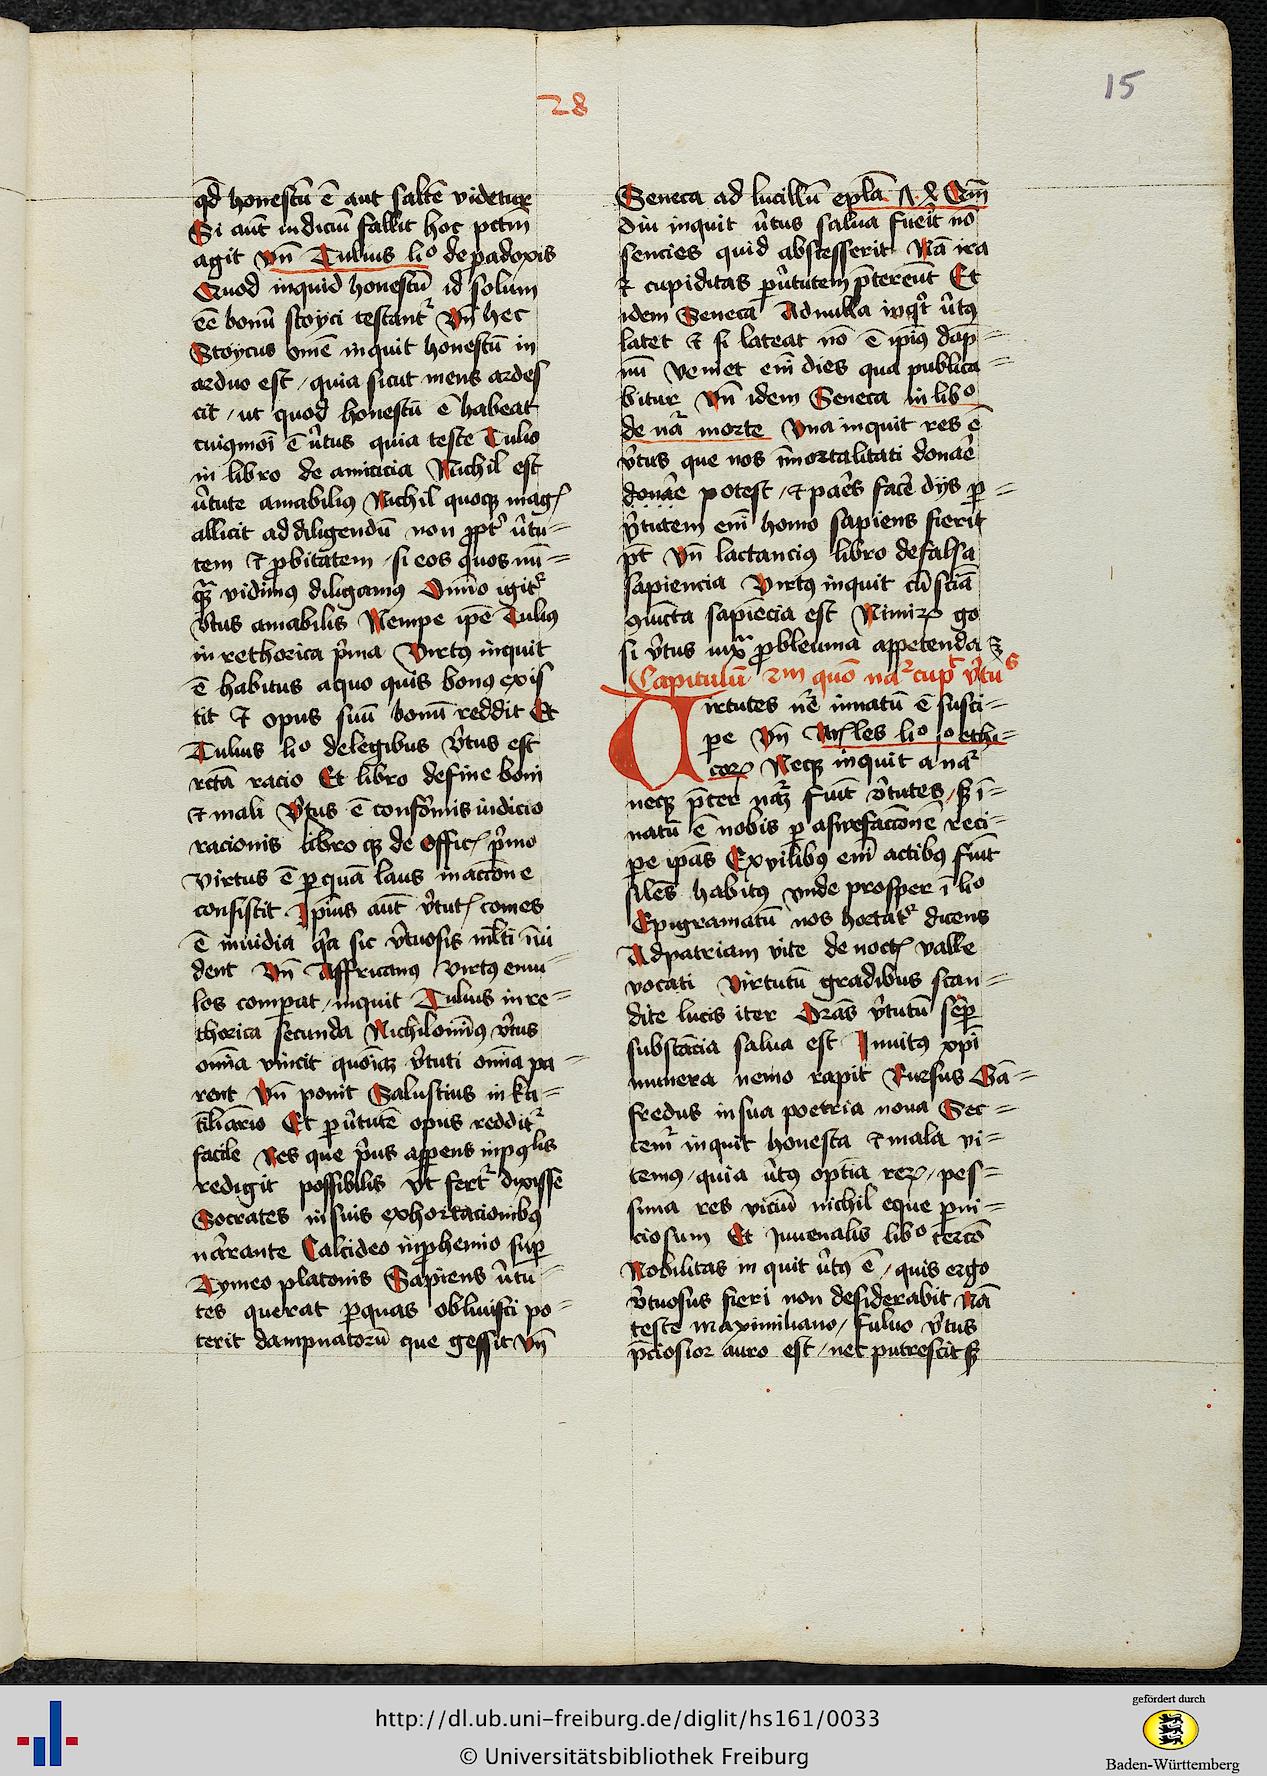 28
15
qd honestū ē aut saltē videtur
Si aūt indiciū fallit hoc pctm̄
agit vn̄ Tulius lio de padoxis
Quod inquid honestū id solum
eē bonū stoyci testant᷑ Vn̄ hec
Stoycus omē inquit honestū in
arduo est / quia sicut mens ardes
cit / ut quod honestū ē habeat
cuiqmoī ē v̄tus quia teste Tulio
in libro de amicicia Nichil est
v̄tute amabilius Nichil quoqꝫ mag
allicit ad diligendū non ꝓpt v̄tu=
tem et ꝓbitatem / si eos quos nū=
vidimꝰ diligamꝰ Omīo igit᷑
v̄tus amabilis Nempe ipē Tulius
in rethorica p̄ma Virtꝰ inquit
ē habitus a quo quis bonꝰ exis
tit et opus suū bonū reddit Et
Tulius lio de legibus v̄tus est
rctā racio Et libro de fine boni
et mali v̄tus ē confōmis iudicio
racionis libro qꝫ de offic p̄mo
Virtus ē ꝑ quā laus in accōne
consistit Ipīus aūt v̄tut comes
ē inuidia qa sic v̄tuosis ml̄ti īui
dent Vn̄ Affricanus Virtꝰ emu=
los compat / inquit Tulius in re=
thorica secunda Nichilomīꝰ v̄tus
omīa vincit quoiqꝫ v̄tuti omīa pa=
rent Vn̄ ponit Salustius in kti=
liario Et ꝑ v̄tutē opus reddit᷑
facile Res que p̄us appens
redigit possibilis Vt fert᷑ dixisse
Socrates in suis exhortacionibꝰ
narrante Calcideo in ꝓhemio suꝑ
Tymeo platonis Sapiens v̄tu=
tes querat ꝑ quas obliuisci po=
terit dampnatorū que gessit Vn̄
Seneca ad lucillū ep̄lā
diu inquit v̄tus salua fuerit nō
sencies quid abscesserit Nā ira
et cupiditas ꝑ v̄tutem p̄tereūt Et
idem Seneca Ad nulla v̄tꝰ
latet et si lateat nō ē ipīus dāp=
nū veniet em̄ dies qua publica=
bitur Vn̄ idem Seneca in libo
de nar̄ morte Vna inquit res ē
v̄tus que nos īmortalitati donare
donare potest / et paēs facē dijs ꝑ=
v̄tutem em̄ homo sapiens fierit
pt̄ Vn̄ lactancius libro de falsa
sapiencia Virtꝰ inquit cū sciā
ꝯiūcta sapiēcia est Nimiꝝ go
si v̄tus iux ꝓbleuma appetenda
Capitulū 2m quō na᷑ cup v̄tus
Virtutes nrē innatū ē susci=
pe Vn̄ Ar̄les lio ethi=
coꝝ Neqꝫ inquit a na᷑
neqꝫ p̄ter naꝫ fiūt v̄tutes / sꝫ ī=
natū ē nobis ꝑ assuefaccōnē reci=
pe ipās Ex vilibꝰ em̄ actibꝰ fiūt
siles habitꝰ vnde prosper ī lio
Epigramatū nos hortat᷑ dicens
Ad patriam vite de noct valle
vocati Virtutū gradibus scan=
dite lucis iter Grās v̄tutū seꝑ
substācia salua est Inuitꝰ xpī
munera nemo rapit Rursus Gā=
fredus in sua poetria noua Sec=
tem᷑ inquit honesta et mala vi=
temꝰ / quia v̄tꝰ optīa reꝝ / pes=
sima res viciū nichil eque ꝑni=
ciosum Et Juuenalis libo tercō
Nobilitas in quit v̄tꝰ ē / quis ergo
v̄tuosus fieri non desiderabit Nā
teste maximiliano / fuluo v̄tus
p̄ciosior auro est / nec putrescit sꝫ
http://dl.ub.uni-freiburg.de/diglit/hs161/0033
© Universitätsbibliothek Freiburg
gefördert durch
Baden-Württemberg